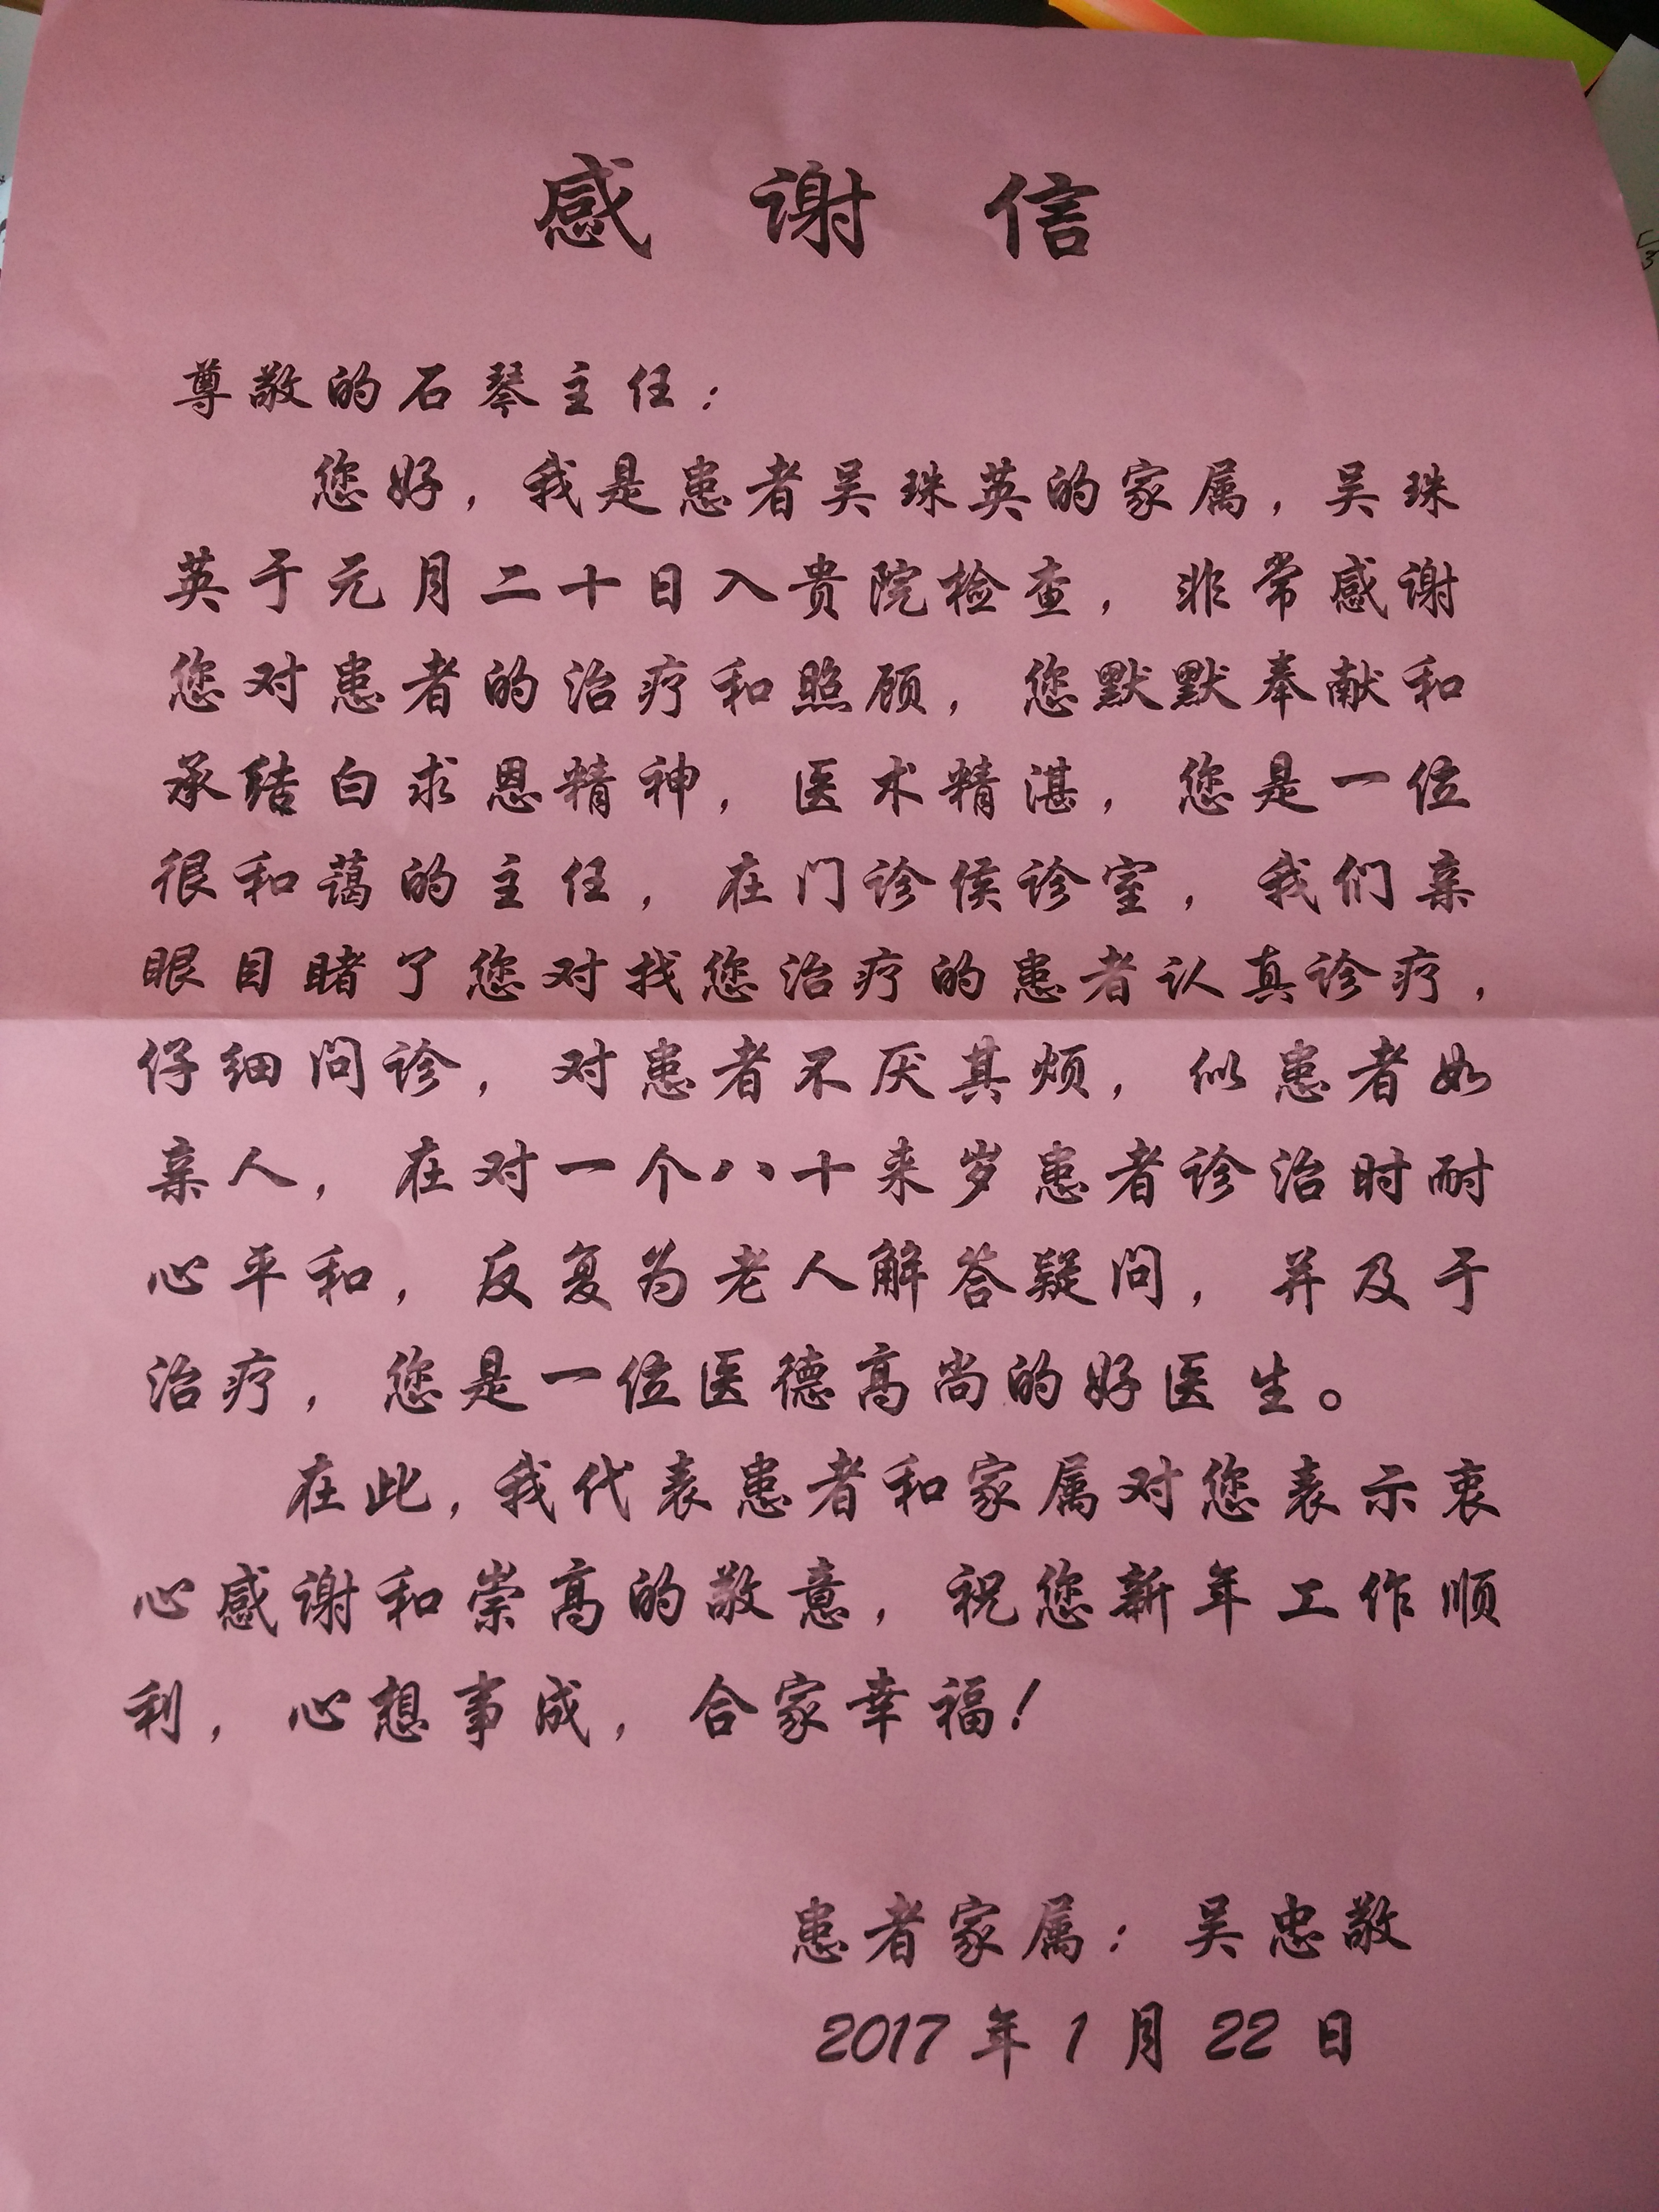 感谢信
尊敬的石琴主任：
您好，我是患者吴珠英的家属，吴珠
英于元月二十日入贵院检查，非常感谢
您对患者的治疗和照顾，您默默奉献和
承结白求恩精神，医术精湛，您是一位
很和蔼的主任，在门诊侯诊室，我们亲
眼目睹了您对找您治疗的患者认真诊疗，
仔细问诊，对患者不厌其烦，似患者如
亲人，在对一个八十来岁患者诊治时耐
心平和，反复为老人解答疑问，并及于
治疗，您是一位医德高尚的好医生。
在此，我代表患者和家属对您表示衷
心感谢和崇高的敬意，祝您新年工作顺
利，心想事成，合家幸福！
患者家属：吴忠敬
2017年1月22日